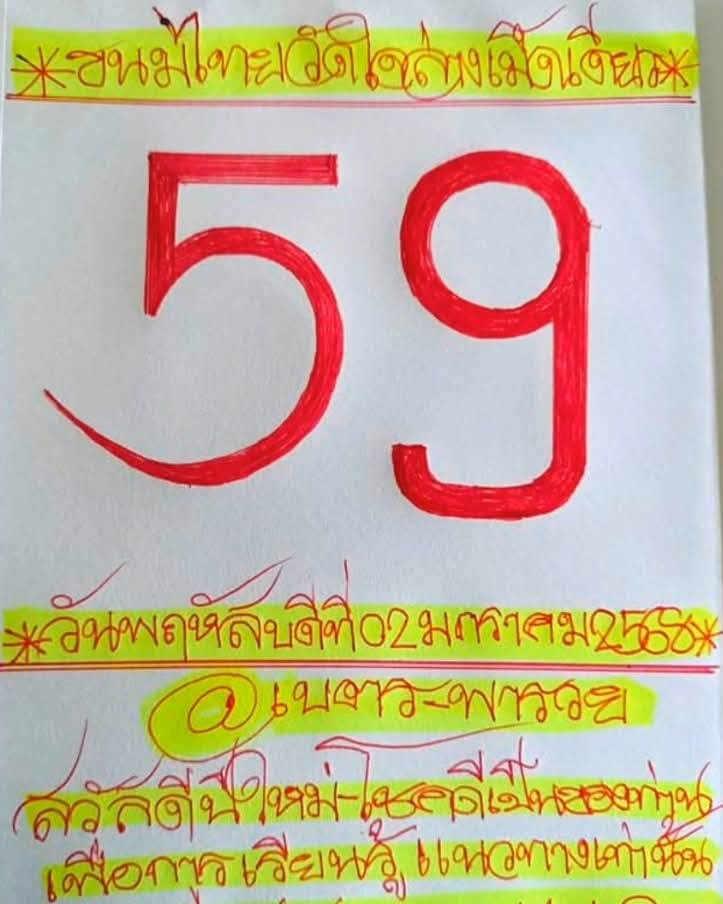 *ขนมไทยวัดใจล่างเม็ดเดียว*
59
*วันพฤหัสบดีที่02มกราคม2568*
@เบตาร-พารวย
สวัสดีปีใหม่-โชคดีเป็นของท่าน
เพื่อการเรียนรู้แนวทางเท่านั้น